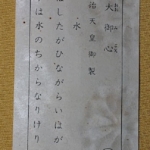 大御心
治天皇御製
水
したがひながらいはが
は水のちからなりけり